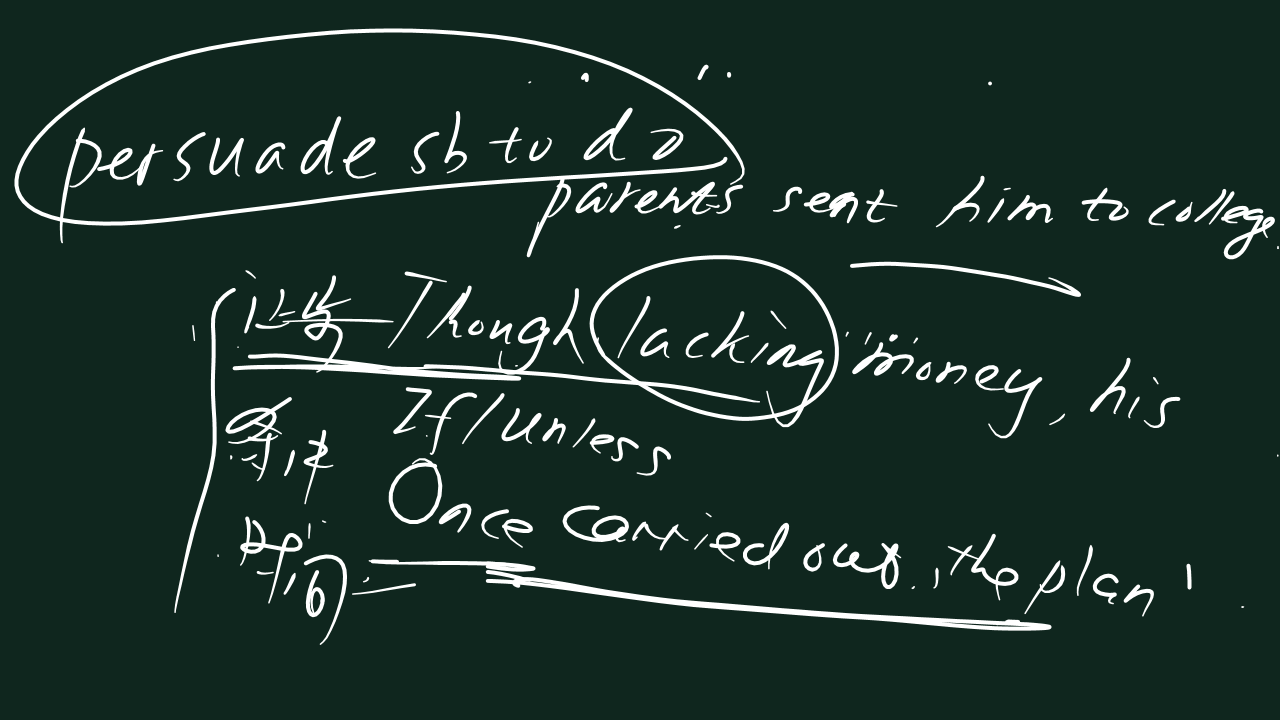 persuade sb to do
parents sent him to college.
让步 Though lacking money, his
条件 If/unless
时间 Once carried out, the plan